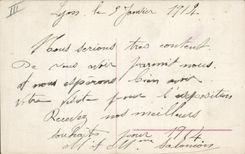 III
Lyon, le 2 Janvier 1914
Nous serions tres content
De vous voir parmit nous.
et nous espérons bien avoir
votre visite pour l'exposition
Recevez nos meilleurs
souhaits pour 1914.
M. et Mme Salomon